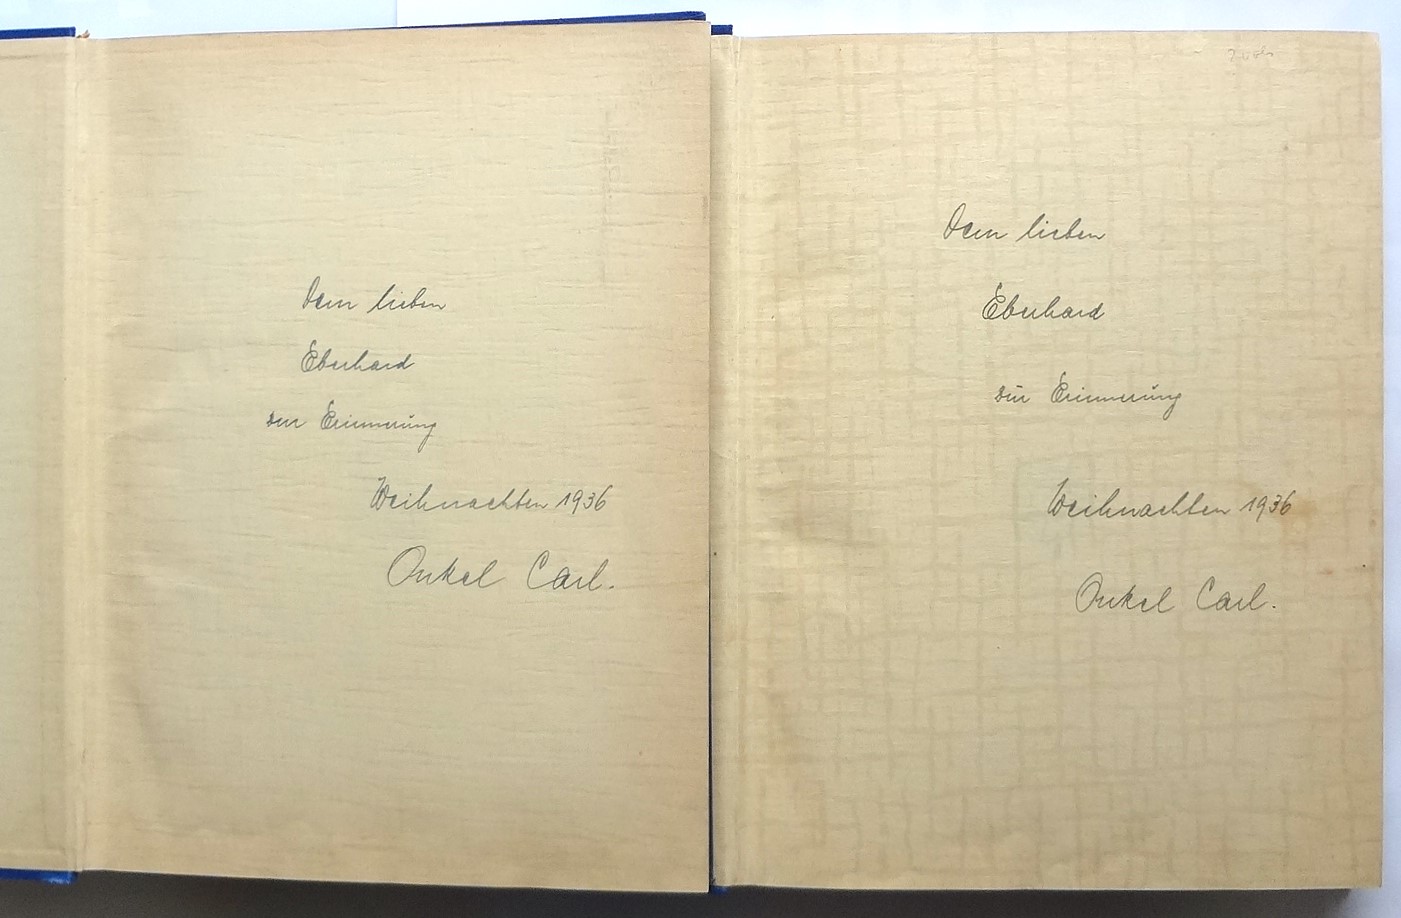 Dem lieben
Eberhard
zur Erinnerung
Weihnachten 1936
Onkel Carl.
2 vols
Dem lieben
Eberhard
zur Erinnerung
Weihnachten 1936
Onkel Carl.